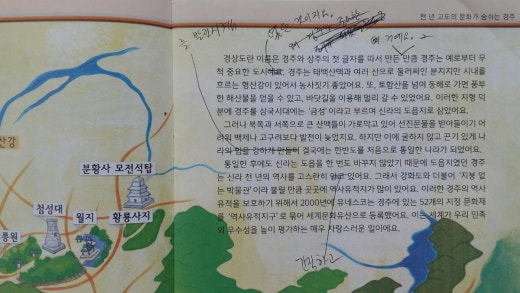 천 년 고도의 문화가 숨쉬는 경주
경상도란 이름은 경주와 상주의 첫 글자를 따서 만든 만큼 경주는 예로부터 무
척 중요한 도시예요. 경주는 태백산맥과 여러 산으로 둘러싸인 분지지만 시내를
흐르는 형산강이 있어서 농사짓기 좋았어요. 또, 토함산을 넘어 동해로 가면 풍부
한 해산물을 얻을 수 있고, 바닷길을 이용해 멀리 갈 수 있었어요. 이러한 지형 덕
분에 경주를 삼국시대에는 '금성'이라고 부르며 신라의 도읍지로 삼았어요.
그러나 북쪽과 서쪽으로 큰 산맥들이 가로막고 있어 선진문물을 받아들이기 어
려워 백제나 고구려보다 발전이 늦었지요. 하지만 이에 굴하지 않고 끈기 있게 나
라의 힘을 강하게 만들어 결국에는 한반도를 처음으로 통일한 나라가 되었어요.
통일한 후에도 신라는 도읍을 한 번도 바꾸지 않았기 때문에 도읍지였던 경주
는 신라 천 년의 역사를 고스란히 안고 있어요. 그래서 강화도와 더불어 '지붕 없
는 박물관'이라 불릴 만큼 곳곳에 역사유적지가 많이 있어요. 이러한 경주의 역사
유적을 보호하기 위해서 2000년에 유네스코는 경주에 있는 52개의 지정 문화재
를 '역사유적지구'로 묶어 세계문화유산으로 등록했어요. 이는 세계가 우리 민족
의 우수성을 높이 평가하는 매우 자랑스러운 일이에요.
간직하고
산강
분황사 모전석탑
첨성대
월지
황룡사지
릉원